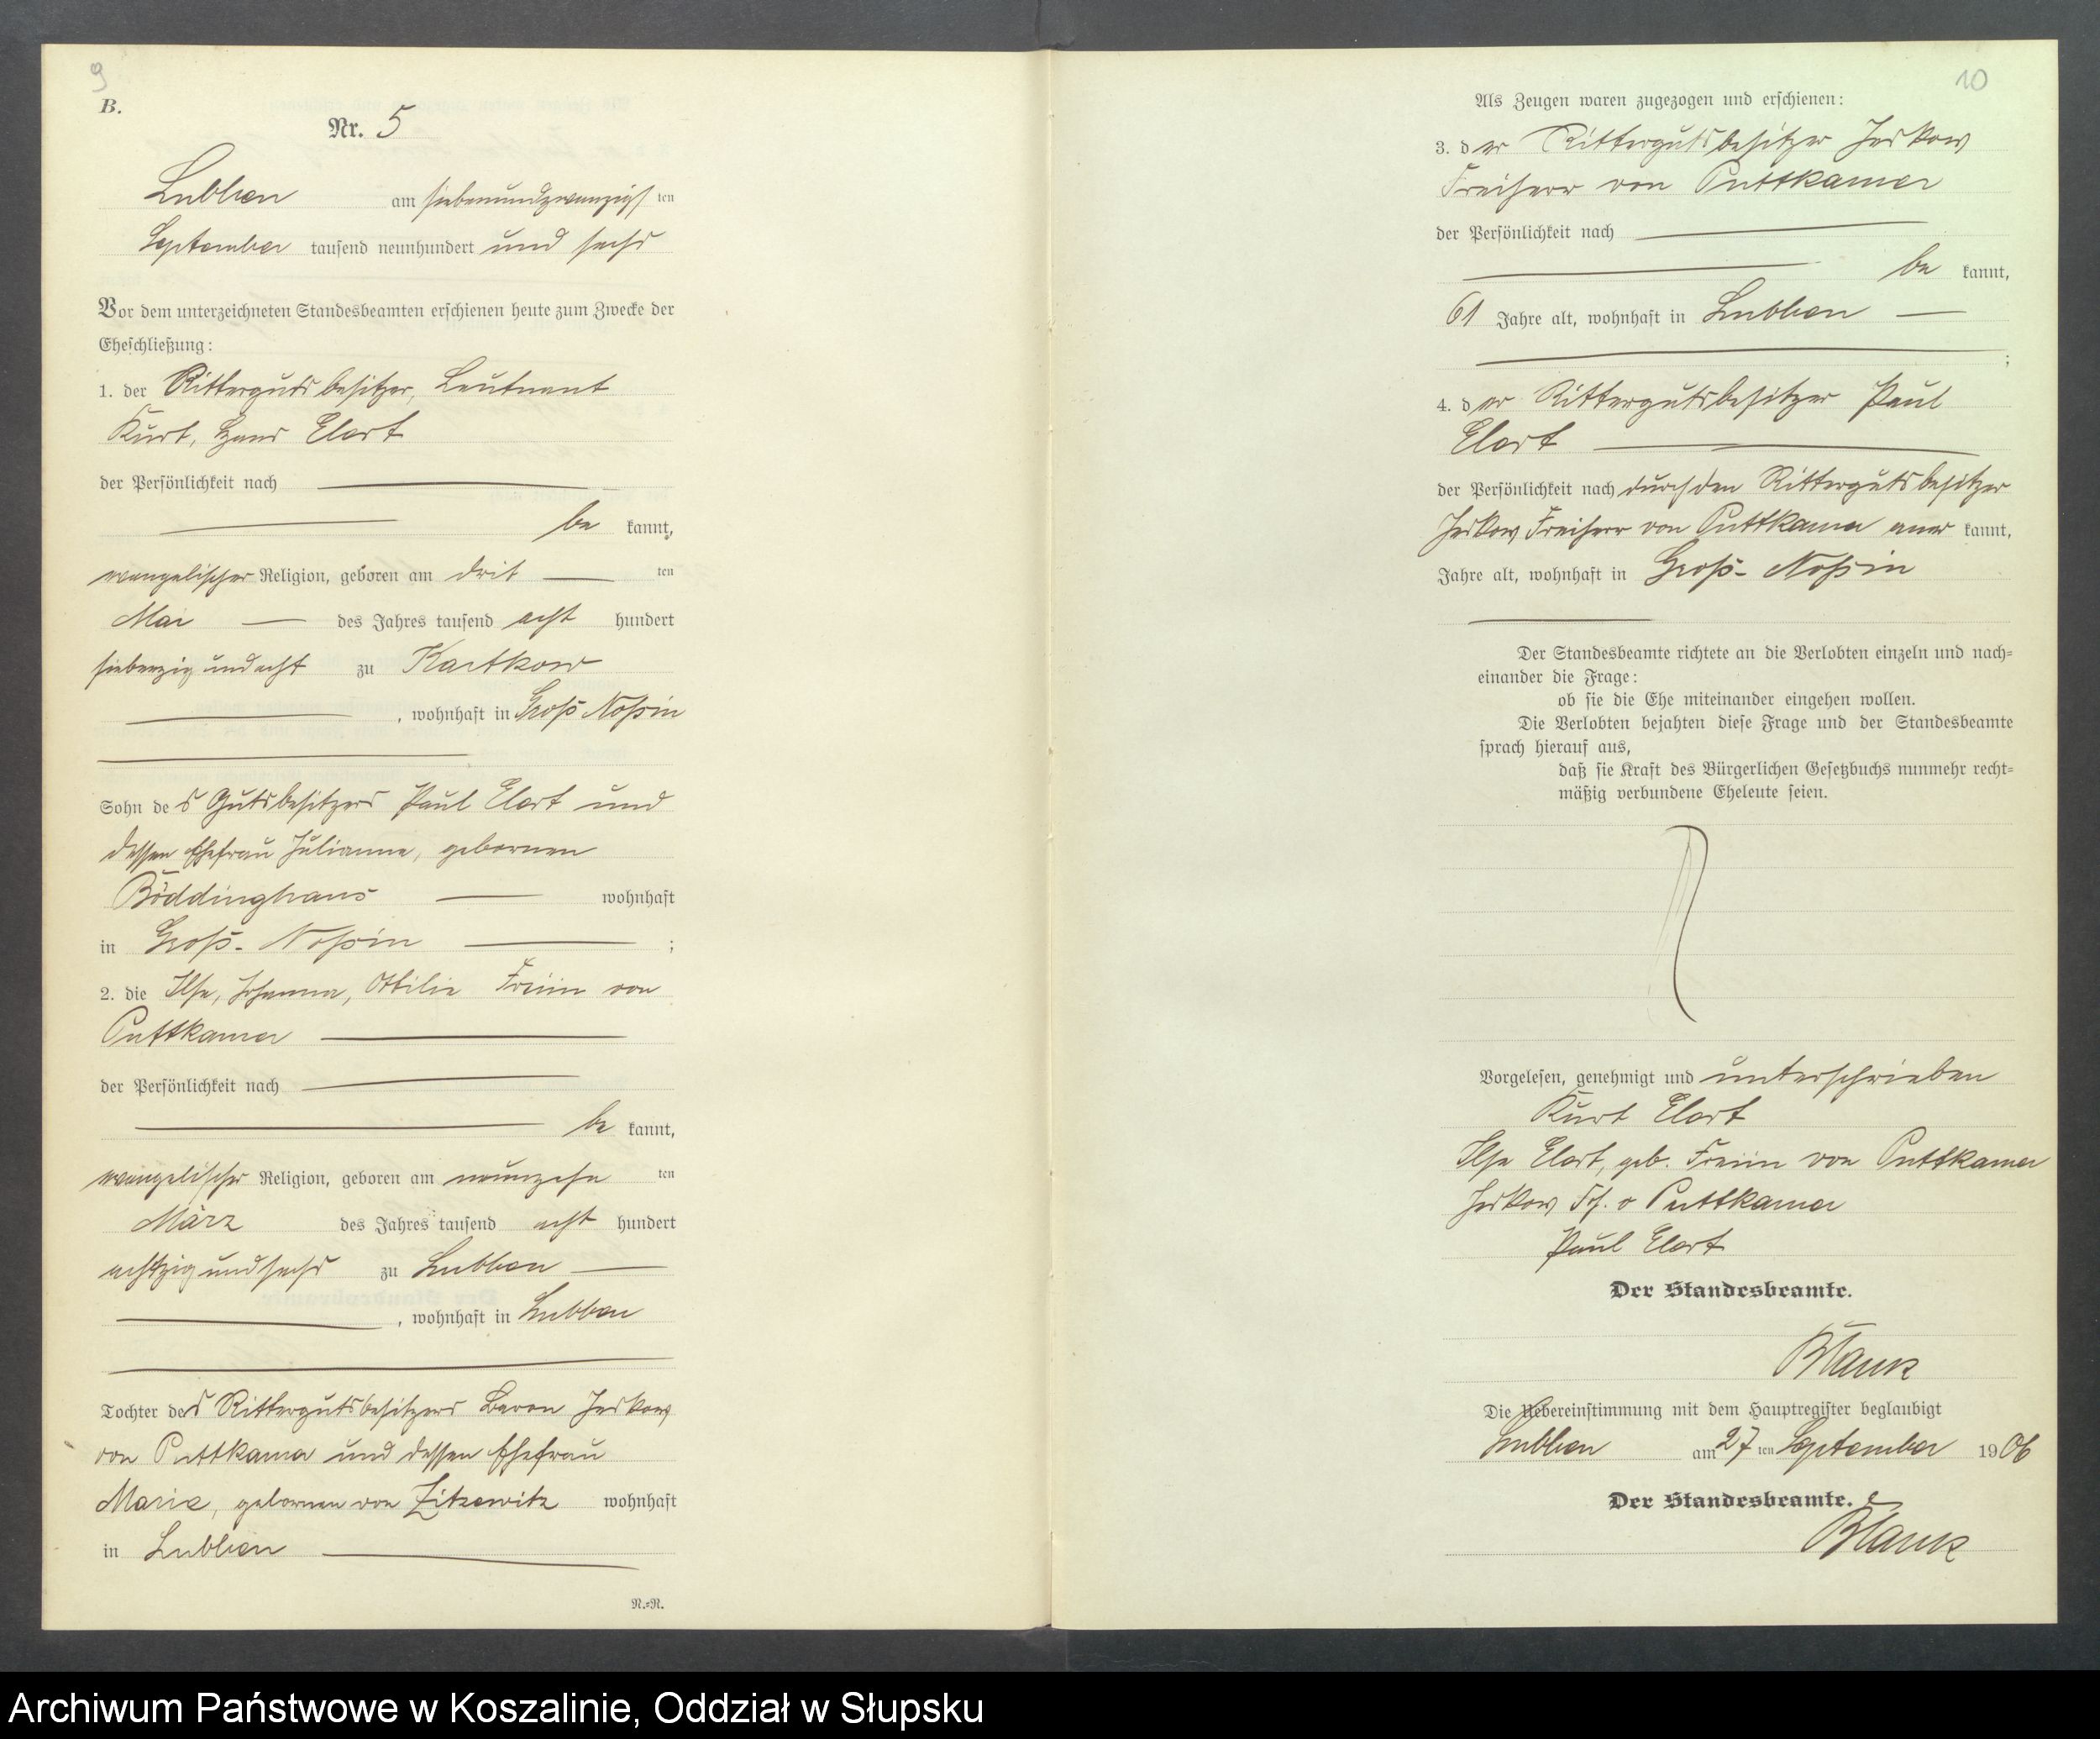 9
B.
Nr. 5
Lubben am siebenundzwanzigs ten
September tausend neunhundert und sechs
Vor dem unterzeichneten Standesbeamten erschienen heute zum Zwecke der
Eheschließung:
1. der Rittergutsbesitzer, Leutnant
Kurt, Hans Elert
der Persönlichkeit nach
be kannt,
evangelischer Religion, geboren am drit ten
Mai des Jahres tausend acht hundert
siebenzig und acht zu Kartkow
, wohnhaft in Groß Nossin
Sohn des Gutsbesitzers Paul Elert und
dessen Ehefrau Julianne, geborenen
Böddinghaus wohnhaft
in Groß-Nossin ;
2. die Ilse, Johanna, Ottilie Freiin von
Puttkamer
der Persönlichkeit nach
be kannt,
evangelischer Religion, geboren am neunzehn ten
März des Jahres tausend acht hundert
achtzig und sechs zu Lubben
, wohnhaft in Lubben
Tochter des Rittergutsbesitzers Baron Jeskow
von Puttkamer und dessen Ehefrau
Marie, geborenen von Zitzewitz wohnhaft
in Lubben
N.=N.
10
Als Zeugen waren zugezogen und erschienen:
3. der Rittergutsbesitzer Jeskow
Freiherr von Puttkamer
der Persönlichkeit nach
be kannt,
61 Jahre alt, wohnhaft in Lubben
;
4. der Rittergutsbesitzer Paul
Elert
der Persönlichkeit nach durch den Rittergutsbesitzer
Jeskow Freiherr von Puttkamer aner kannt,
Jahre alt, wohnhaft in Groß-Nossin
Der Standesbeamte richtete an die Verlobten einzeln und nach=
einander die Frage:
ob sie die Ehe miteinander eingehen wollen.
Die Verlobten bejahten diese Frage und der Standesbeamte
sprach hierauf aus,
daß sie Kraft des Bürgerlichen Gesetzbuchs nunmehr recht=
mäßig verbundene Eheleute seien.
Vorgelesen, genehmigt und unterschrieben
Kurt Elert
Ilse Elert, geb. Freiin von Puttkamer
Jeskow Frh. v Puttkamer
Paul Elert
Der Standesbeamte.
Die Uebereinstimmung mit dem Hauptregister beglaubigt
Lubben am 27 ten September 1906
Der Standesbeamte.
Archiwum Państwowe w Koszalinie, Oddział w Słupsku